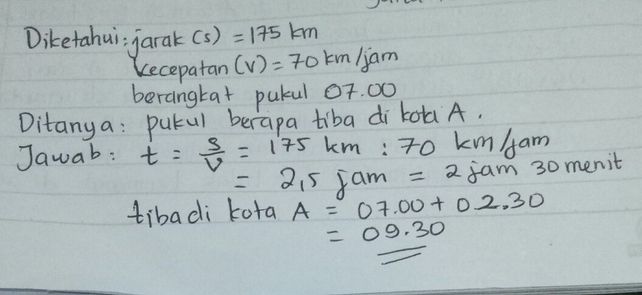 Diketahui: jarak (s) = 175 km
kecepatan (v) = 70 km/jam
berangkat pukul 07.00
Ditanya: pukul berapa tiba di kota A.
Jawab: t = s/v = 175 km : 70 km/jam
= 2,5 jam = 2 jam 30 menit
tiba di kota A = 07.00 + 02.30
= 09.30